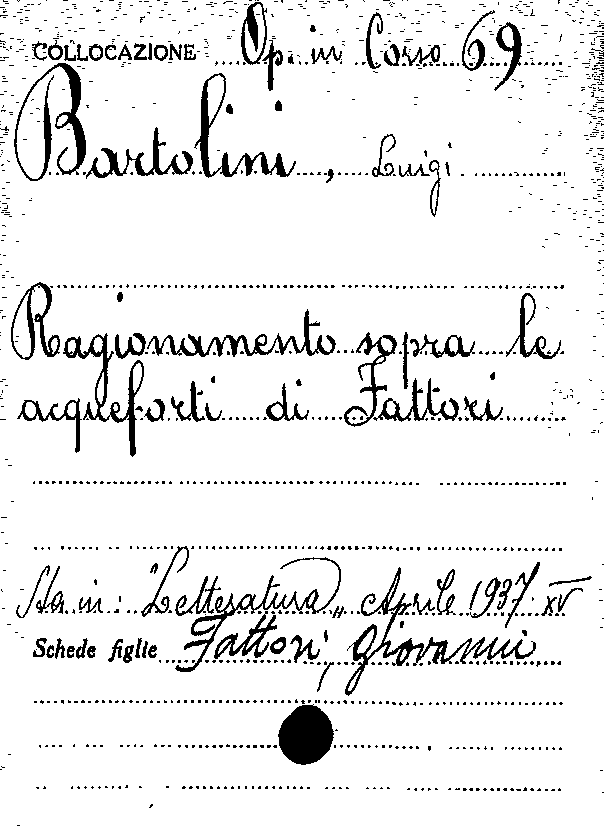 COLLOCAZIONE Op. in Corso 69
Bartolini, Luigi
Ragionamento sopra le
acqueforti di Fattori
Sta in: "Letteratura" Aprile 1937. XV
Schede figlie Fattori, Giovanni